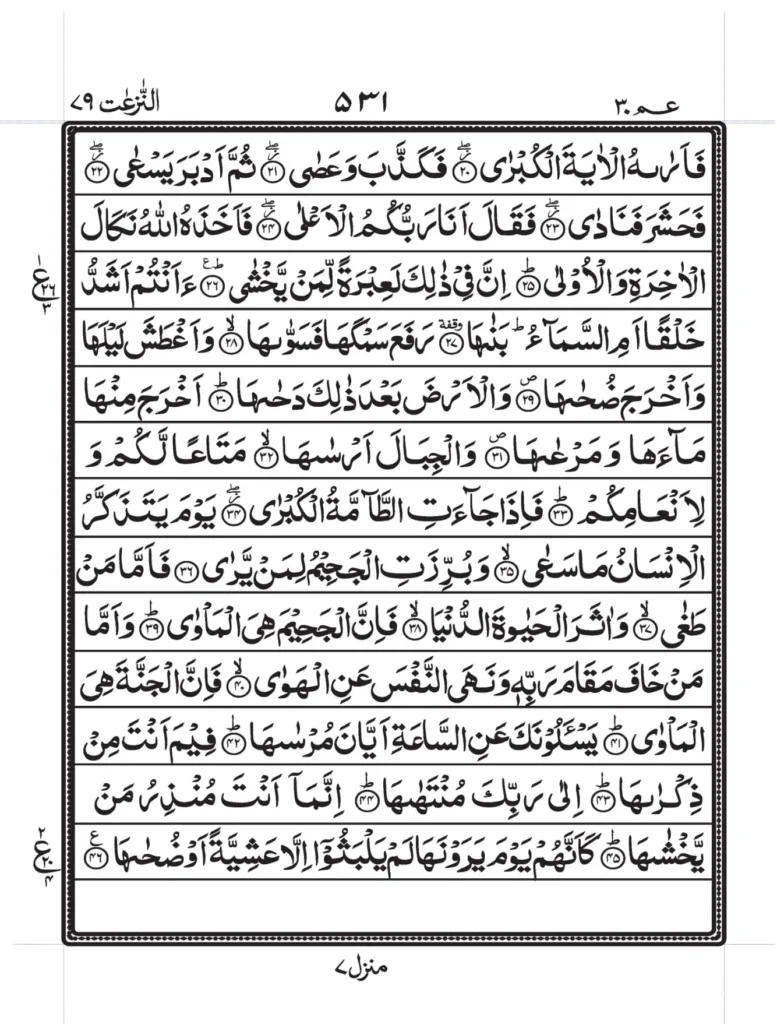 عـم ٣٠ ٥٣١ النّٰزعٰت ٧٩
فَاَرٰىهُ الْاٰيَةَ الْكُبْرٰى ۖ ۝٢٠ فَكَذَّبَ وَعَصٰى ۖ ۝٢١ ثُمَّ اَدْبَرَ يَسْعٰى ۖ ۝٢٢
فَحَشَرَ فَنَادٰى ۖ ۝٢٣ فَقَالَ اَنَا رَبُّكُمُ الْاَعْلٰى ۖ ۝٢٤ فَاَخَذَهُ اللّٰهُ نَكَالَ
الْاٰخِرَةِ وَالْاُوْلٰى ؕ ۝٢٥ اِنَّ فِيْ ذٰلِكَ لَعِبْرَةً لِّمَنْ يَّخْشٰى ؕ ع ۝٢٦ ءَاَنْتُمْ اَشَدُّ
ع ١ ٢٦ ٣
خَلْقًا اَمِ السَّمَآءُ ؕ بَنٰىهَا وقفة ۝٢٧ رَفَعَ سَمْكَهَا فَسَوّٰىهَا ۙ ۝٢٨ وَاَغْطَشَ لَيْلَهَا
وَاَخْرَجَ ضُحٰىهَا ص ۝٢٩ وَالْاَرْضَ بَعْدَ ذٰلِكَ دَحٰىهَا ؕ ۝٣٠ اَخْرَجَ مِنْهَا
مَآءَهَا وَمَرْعٰىهَا ص ۝٣١ وَالْجِبَالَ اَرْسٰىهَا ۙ ۝٣٢ مَتَاعًا لَّكُمْ وَ
لِاَنْعَامِكُمْ ؕ ۝٣٣ فَاِذَا جَآءَتِ الطَّآمَّةُ الْكُبْرٰى ۖ ۝٣٤ يَوْمَ يَتَذَكَّرُ
الْاِنْسَانُ مَا سَعٰى ۙ ۝٣٥ وَبُرِّزَتِ الْجَحِيْمُ لِمَنْ يَّرٰى ۝٣٦ فَاَمَّا مَنْ
طَغٰى ۙ ۝٣٧ وَاٰثَرَ الْحَيٰوةَ الدُّنْيَا ۙ ۝٣٨ فَاِنَّ الْجَحِيْمَ هِيَ الْمَاْوٰى ؕ ۝٣٩ وَاَمَّا
مَنْ خَافَ مَقَامَ رَبِّهٖ وَنَهَى النَّفْسَ عَنِ الْهَوٰى ۙ ۝٤٠ فَاِنَّ الْجَنَّةَ هِيَ
الْمَاْوٰى ؕ ۝٤١ يَسْـَٔلُوْنَكَ عَنِ السَّاعَةِ اَيَّانَ مُرْسٰىهَا ؕ ۝٤٢ فِيْمَ اَنْتَ مِنْ
ذِكْرٰىهَا ؕ ۝٤٣ اِلٰى رَبِّكَ مُنْتَهٰىهَا ؕ ۝٤٤ اِنَّمَآ اَنْتَ مُنْذِرُ مَنْ
يَّخْشٰىهَا ؕ ۝٤٥ كَاَنَّهُمْ يَوْمَ يَرَوْنَهَا لَمْ يَلْبَثُوْٓا اِلَّا عَشِيَّةً اَوْ ضُحٰىهَا ع ۝٤٦
ع ٢ ٢٠ ٤
منزل ٧